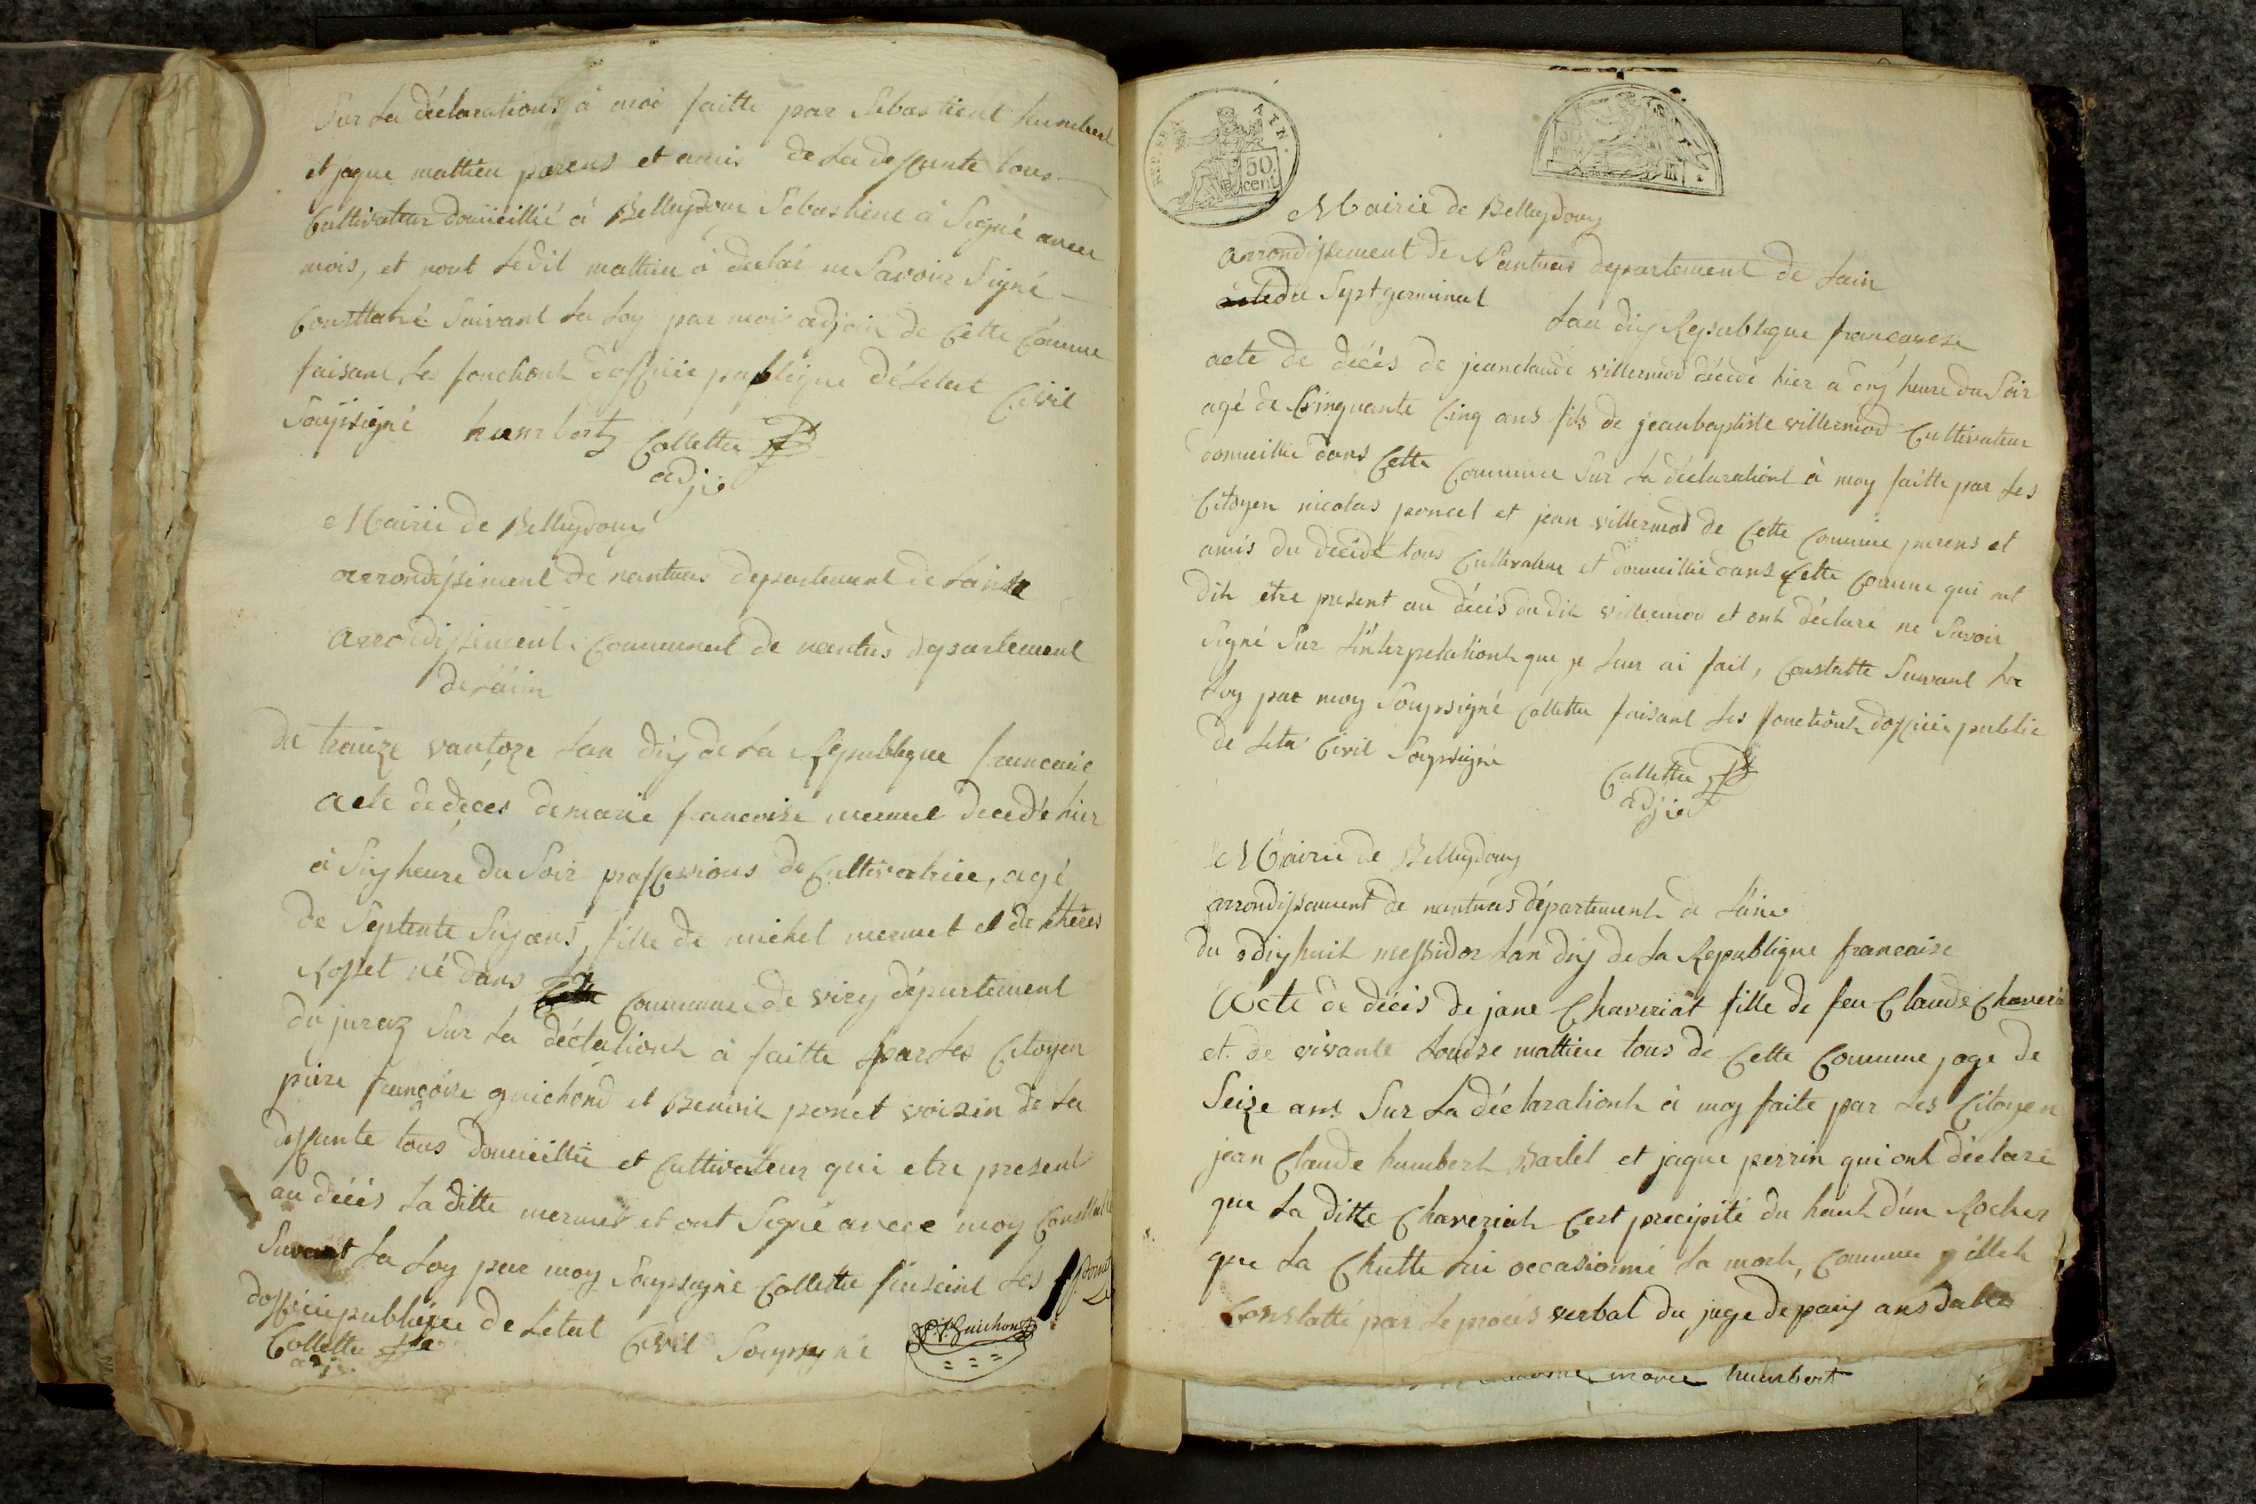 Sur la déclarations à moi faitte par Sebastient humbert
et jaque mathieu parens et amis de la defunte tous
Cultivateur domicillié à Belleydoux Sebastient à Signé avec
mois, et nont ledit mathieu à declaré ne Savoir Signé
Consttatré Suivant la Loy par moi adjoin de Cette Comune
faisant les fonctiont dofficié publique déletat Civil
Soussigné humbert Collettu
adji
Mairie de Belleydoux
arrondissiment de nantuas departement de Lain
arrondissiment Communal de nantus departement
de Lain
de traize vantoze lan dix de la Republique francaise
acte de deces de marie francoise mermet decedé hier
à Six heure du Soir proffessions de Cultivatrice, agé
de Septente Six ans, fille de michel mermet et de
Rosset né dans Cette Commune de viry département
du juraz Sur la déclationt à faitte par les Citoyen
piere françoise guichond et Benoit ponct voisin de la
deffunte tous domicillié et Cultivateur qui etre present
au décés la ditte mermet et ont Signé avece moy Consttatté
Suivant la Loy par moy Soussigné Collettu faisant les
dofficié publique de Létat Civil Soussigné
Collettu
adji
P.f. Guichon
REP. FRA. AIN.
50 cent
Mairie de Belleydoux
arrondissement de Nantuas departement de Lain
acte du Sept germinal
Lan dix Republique françoise
acte de décès de jeanclaude villermod décédé hier à onz heure du Soir
agé de Cinquante Cinq ans fils de jeanbaptiste villermod Cultivateur
domicillié dans Cette Commune Sur la déclarationt à moy faitte par les
Citoyen nicolas poncet et jean villermod de Cette Comune parens et
amis du décédé tous Cultivateur et domicillié dans Cette Comune qui ont
dit être present au décés du dit villermod et ont déclaré ne Savoir
Signé Sur linterpelationt que je leur ai fait, Constatté Suivant la
Loy par moy Soussigné Collettu faisant les fonctiont dofficié public
de leta Civil Soussigné
Collettu
adji
Mairie de Belleydoux
arrondissement de nantuas département de Lain
du dix huit messidor lan dix de la Republique francaise
Acte de décés de jane Chaveriat fille de feu Claude Chaveria
et de vivante Louize mattieu tous de Cette Commune, age de
Seize ans Sur la déclarationt à moy faite par les Citoyen
jean Claude humbert Barlet et jaque perrin qui ont déclaré
que la ditte Chaveriat Cest precipité du haut d'un Rocher
que la Chutte lui occasionné la mort, Comme
Constatté par le procés verbal du juge de paix ans datte
marie humbert